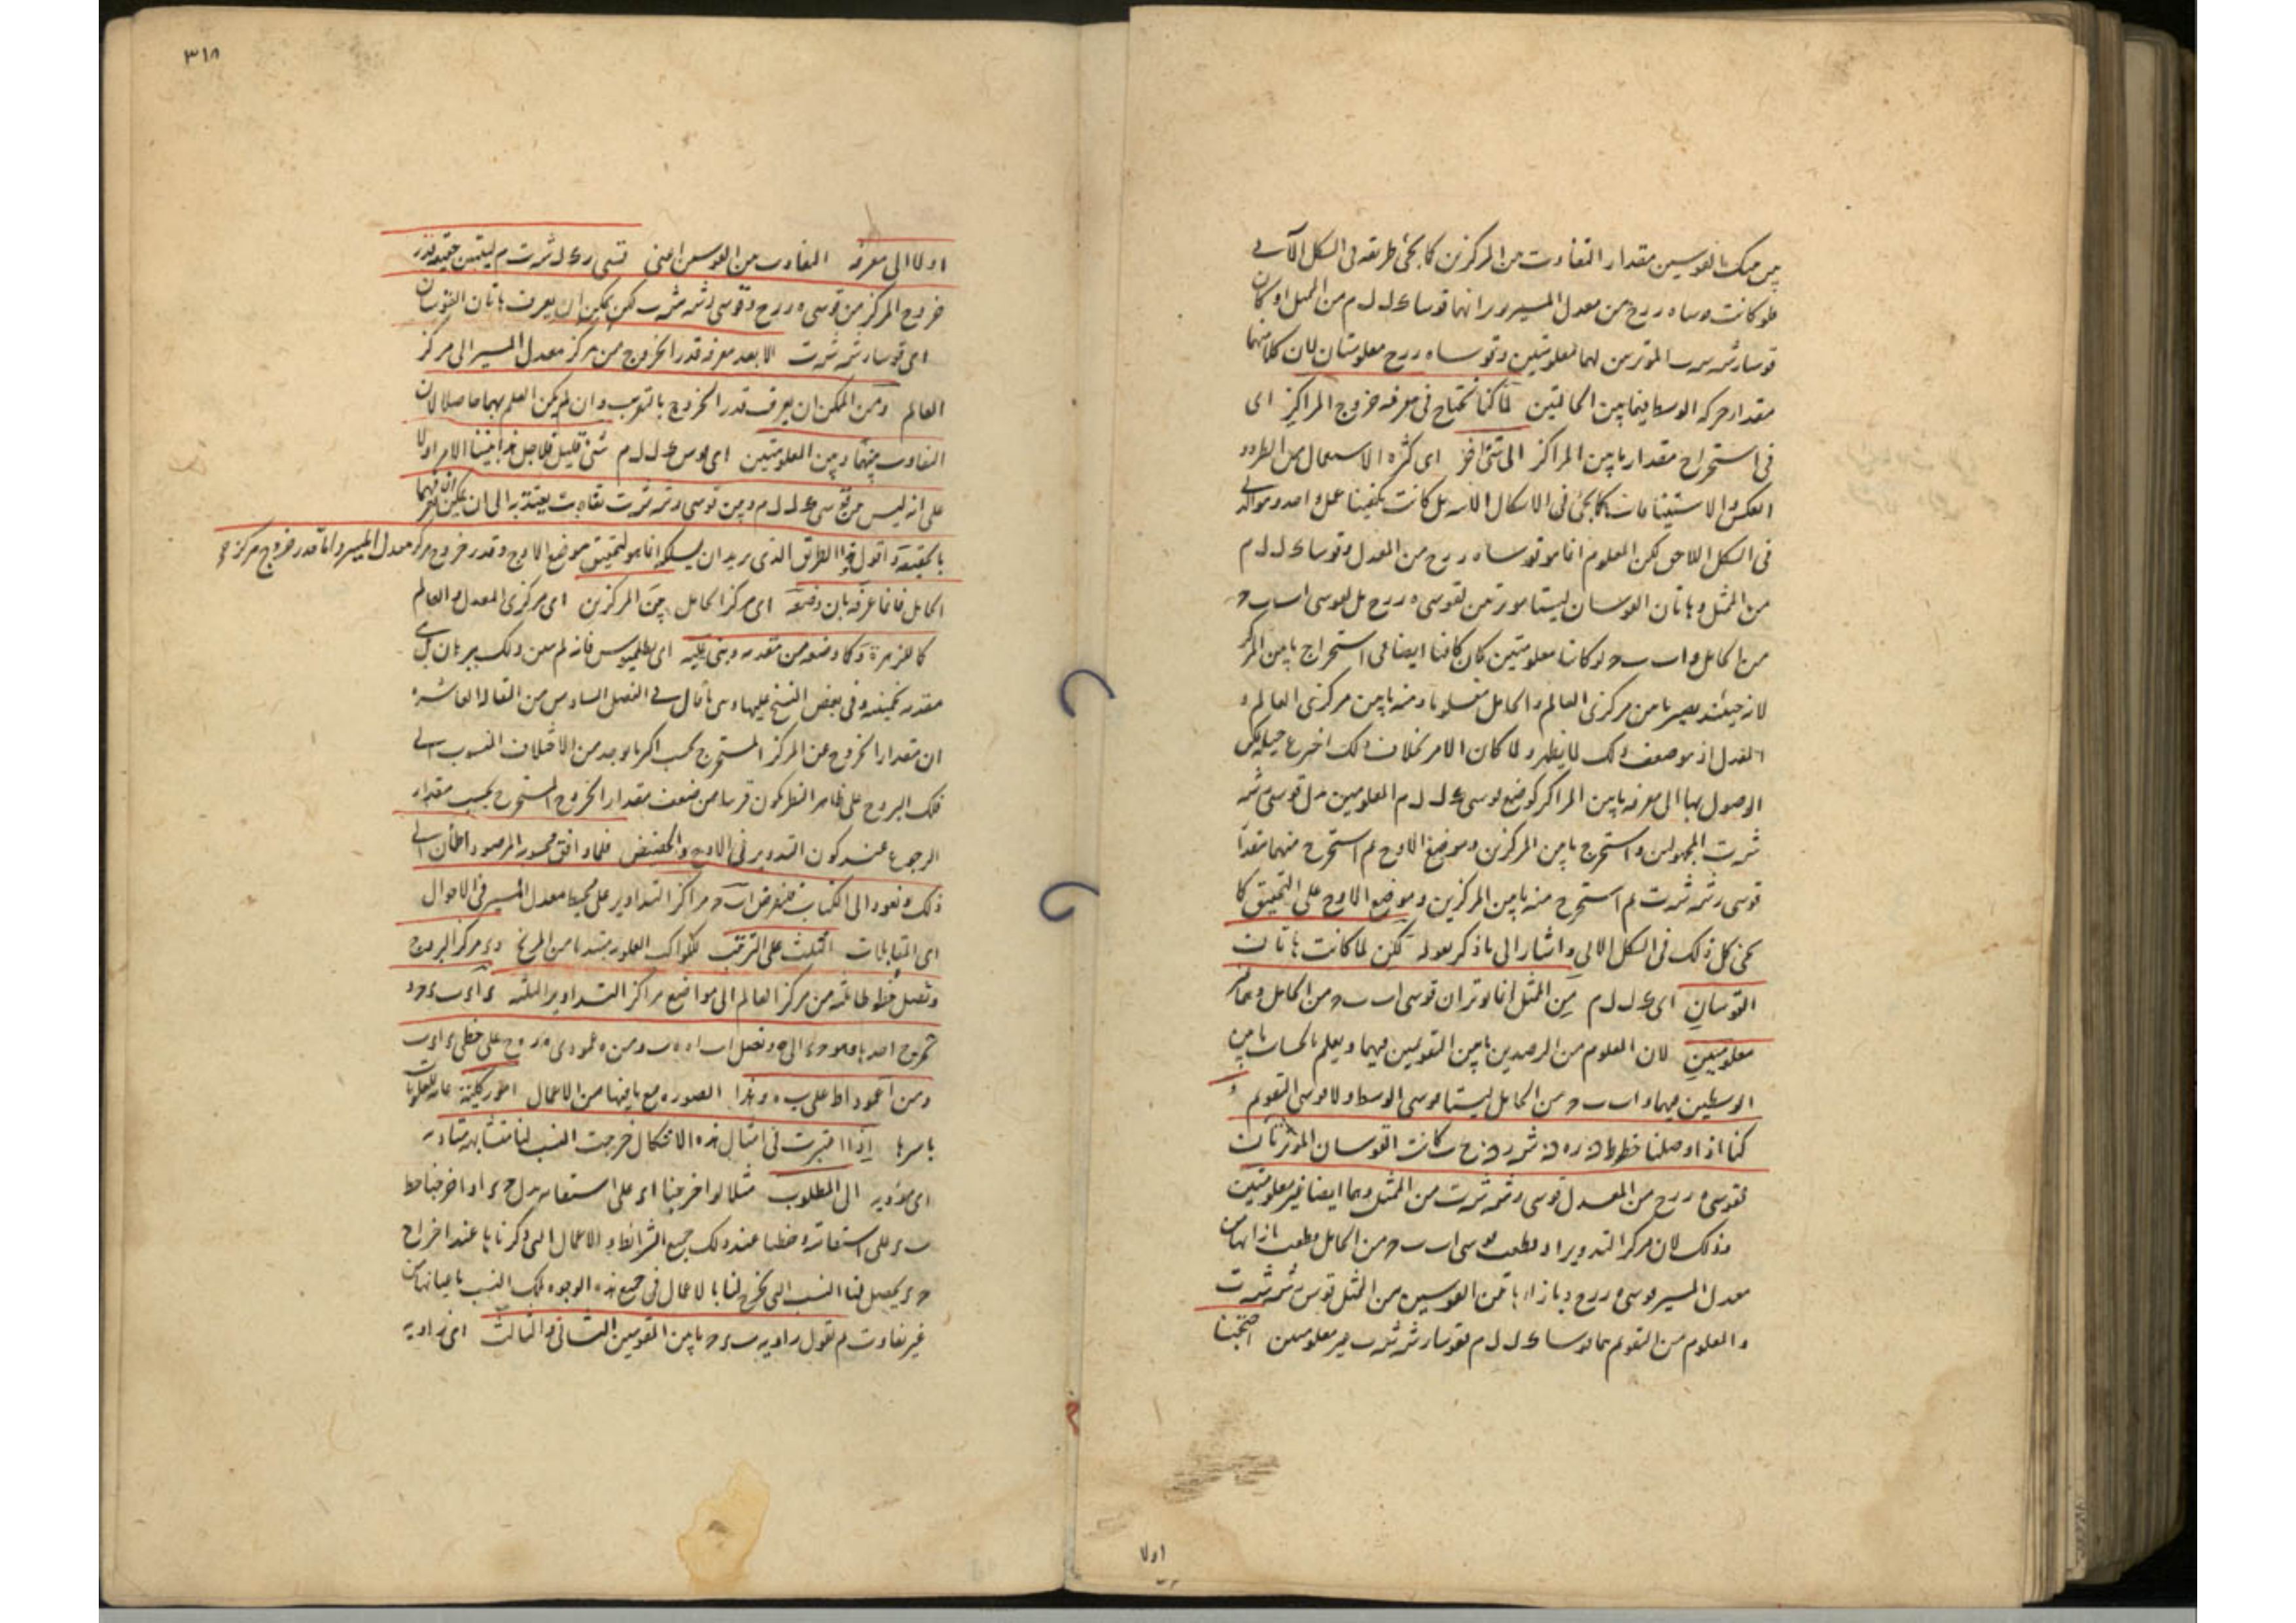 من تينك القوسين مقدار التفاوت من المركزين كما يجئ طريقه فى الشكل الآتى
فلو كانت قوسا ه ر رح من معدل المسير وتراهما قوسا ك ل ل م من الممثل او كان
قوسا رشه شه ت الموترين لهما معلومتين وقوسا ه ر رح معلومتان لان كلا منهما
مقدار حركه الوسط فيما بين الحالتين لما كنا نحتاج فى معرفه خروج المراكز اى
فى استخراج مقدار ما بين المراكز الى شئ آخر اى كثره الاستعمال من الطرد و
العكس والاستينافات كما يجئ فى الاشكال بل كانت يكفينا عمل واحد
فى الشكل اللاحق لكن المعلوم انما هو قوسا ه ر رح من المعدل وقوسا ك ل ل م
من الممثل وهاتان القوسان ليستا موترتين لقوسى ه ر رح بل لقوسى ا ب ب ح
من الحامل و ا ب ب ح لو كانتا معلومتين كان كافيا ايضا فى استخراج ما بين المركز
لانه حينئذ يصير ما بين مركزى العالم والحامل معلوما ومنه ما بين مركزى العالم و
المعدل اذ هو ضعف ذلك لما يظهر ولما كان الامر بخلاف ذلك اخترع حيله يمكن
الوصول بها الى معرفه ما بين المراكز كوضع قوسى ك ل ل م المعلومين بدل قوسى رشه
شه ت المجهولين واستخرج ما بين المركزين وموضع الاوج ثم استخرج منهما مقدار
قوسى رشه شه ت ثم استخرج منه ما بين المركزين وموضع الاوج على التحقيق كما
يجئ كل ذلك فى الشكل الاتى واشار الى ما ذكر بقوله لكن لما كانت هاتان
القوسان اى ك ل ل م من الممثل انما يوتران قوسى ا ب ب ح من الحامل وهما غير
معلومتين لان المعلوم من الرصدين ما بين التقويمين فيهما ويعلم بالحساب ما بين
الوسطين فيهما و ا ب ب ح من الحامل ليستا قوسى الوسط ولا قوسى التقويم و
كنا اذا وصلنا خطوط كانت القوسان الموترتان
لقوسى ه ر رح من المعدل قوسى رشه شه ت من الممثل وهما ايضا غير معلومتين
وذلك لان مركز التدوير اذا قطعت قوسى ا ب ب ح من الحامل قطعت بازائهما من
معدل المسير قوسى ه ر رح وبازاء هاتين القوسين من الممثل قوسى رشه شه ت
والمعلوم من التقويم هما قوسا ك ل ل م فقوسا رشه شه ت غير معلومتين احتجنا
اولا
٣١٨
اولا الى معرفه التفاوت من القوسين اعنى قسى رك ل شه ت م ليتبين حقيقه قدر
خروج المركز من قوسى ه ر رح وقوسى رشه شه ت لكن لم يمكن ان يعرف هاتان القوسان
اى قوسا رشه شه ت الا بعد معرفه قدر الخروج من مركز معدل المسير الى مركز
العالم ومن الممكن ان يعرف قدر الخروج بالتقريب وان لم يكن العلم بهما حاصلا لان
التفاوت بينهما وبين المعلومتين اى قوسى ك ل ل م شئ قليل فلاجل هذا بنينا الامر اولا
على انه ليس من قوسى ك ل ل م وبين قوسى رشه شه ت تفاوت يعتد به الى ان يمكن ان نعرفهما
بالحقيقه واقول هذا الطريق الذى يريد ان يسلكه انما هو لتحقيق موضع الاوج وقدر خروج مركز معدل المسير واما قدر خروج مركز
الحامل فانما عرفه بان وضعه اى مركز الحامل بين المركزين اى مركزى المعدل والعالم
كالزهرة وكما وضعه من تقدمه وبنى عليه اى بطلميوس فانه لم يبين ذلك ببرهان بل
مقدمه تخمينه وفى بعض النسخ عليها وهى ما قال فى الفصل السادس من المقاله العاشره
ان مقدار الخروج عن المركز المستخرج بحسب اكثر ما يوجد من الاختلاف المنسوب الى
فلك البروج على ظاهر النظر يكون قريبا من ضعف مقدار الخروج المستخرج بحسب مقدار
الرجوع عند كون التدوير فى الاوج والحضيض فلما وافق المرصود اطمأن الى
ذلك ونعود الى الكتاب فنفرض ا ب ح مراكز التداوير على محيط معدل المسير فى الاحوال
اى المقابلات الثلث على الترتيب للكواكب العلويه مبتديا من المريخ و ء مركز البروج
ونصل خطوطا ثلثه من مركز العالم الى مواضع مراكز التداوير الثلثه ء ا ء ب ء ح و
نخرج احدها وهو ح ء الى ه ونصل ا ب ا ه ه ب ومن ه عمودى ه ر ه ح على خطى ء ا ء ب
ومن ا عمود ا ط على ب ه وهذا الصوره مع ما فيها من الاعمال امور كليه عامه للعلويات
باسرها اذا اعتبرت فى امثال هذه الاشكال خرجت النسب لنا متشابهه متاديه
اى مؤديه الى المطلوب مثلا لو اخرجنا ا ء على استقامه بدل ح ء او اخرجنا خط
ب ء على استقامته وحفظنا عند ذلك جميع الشرائط والاعمال التى ذكرناها عند اخراج
ح ء يحصل لنا النسب التى تخرج لنا بالاعمال فى جميع هذه الوجوه تلك النسب باعيانها من
غير تفاوت ثم نقول زاويه ب ء ح ما بين التقويمين الثانى والثالث اى زاويه